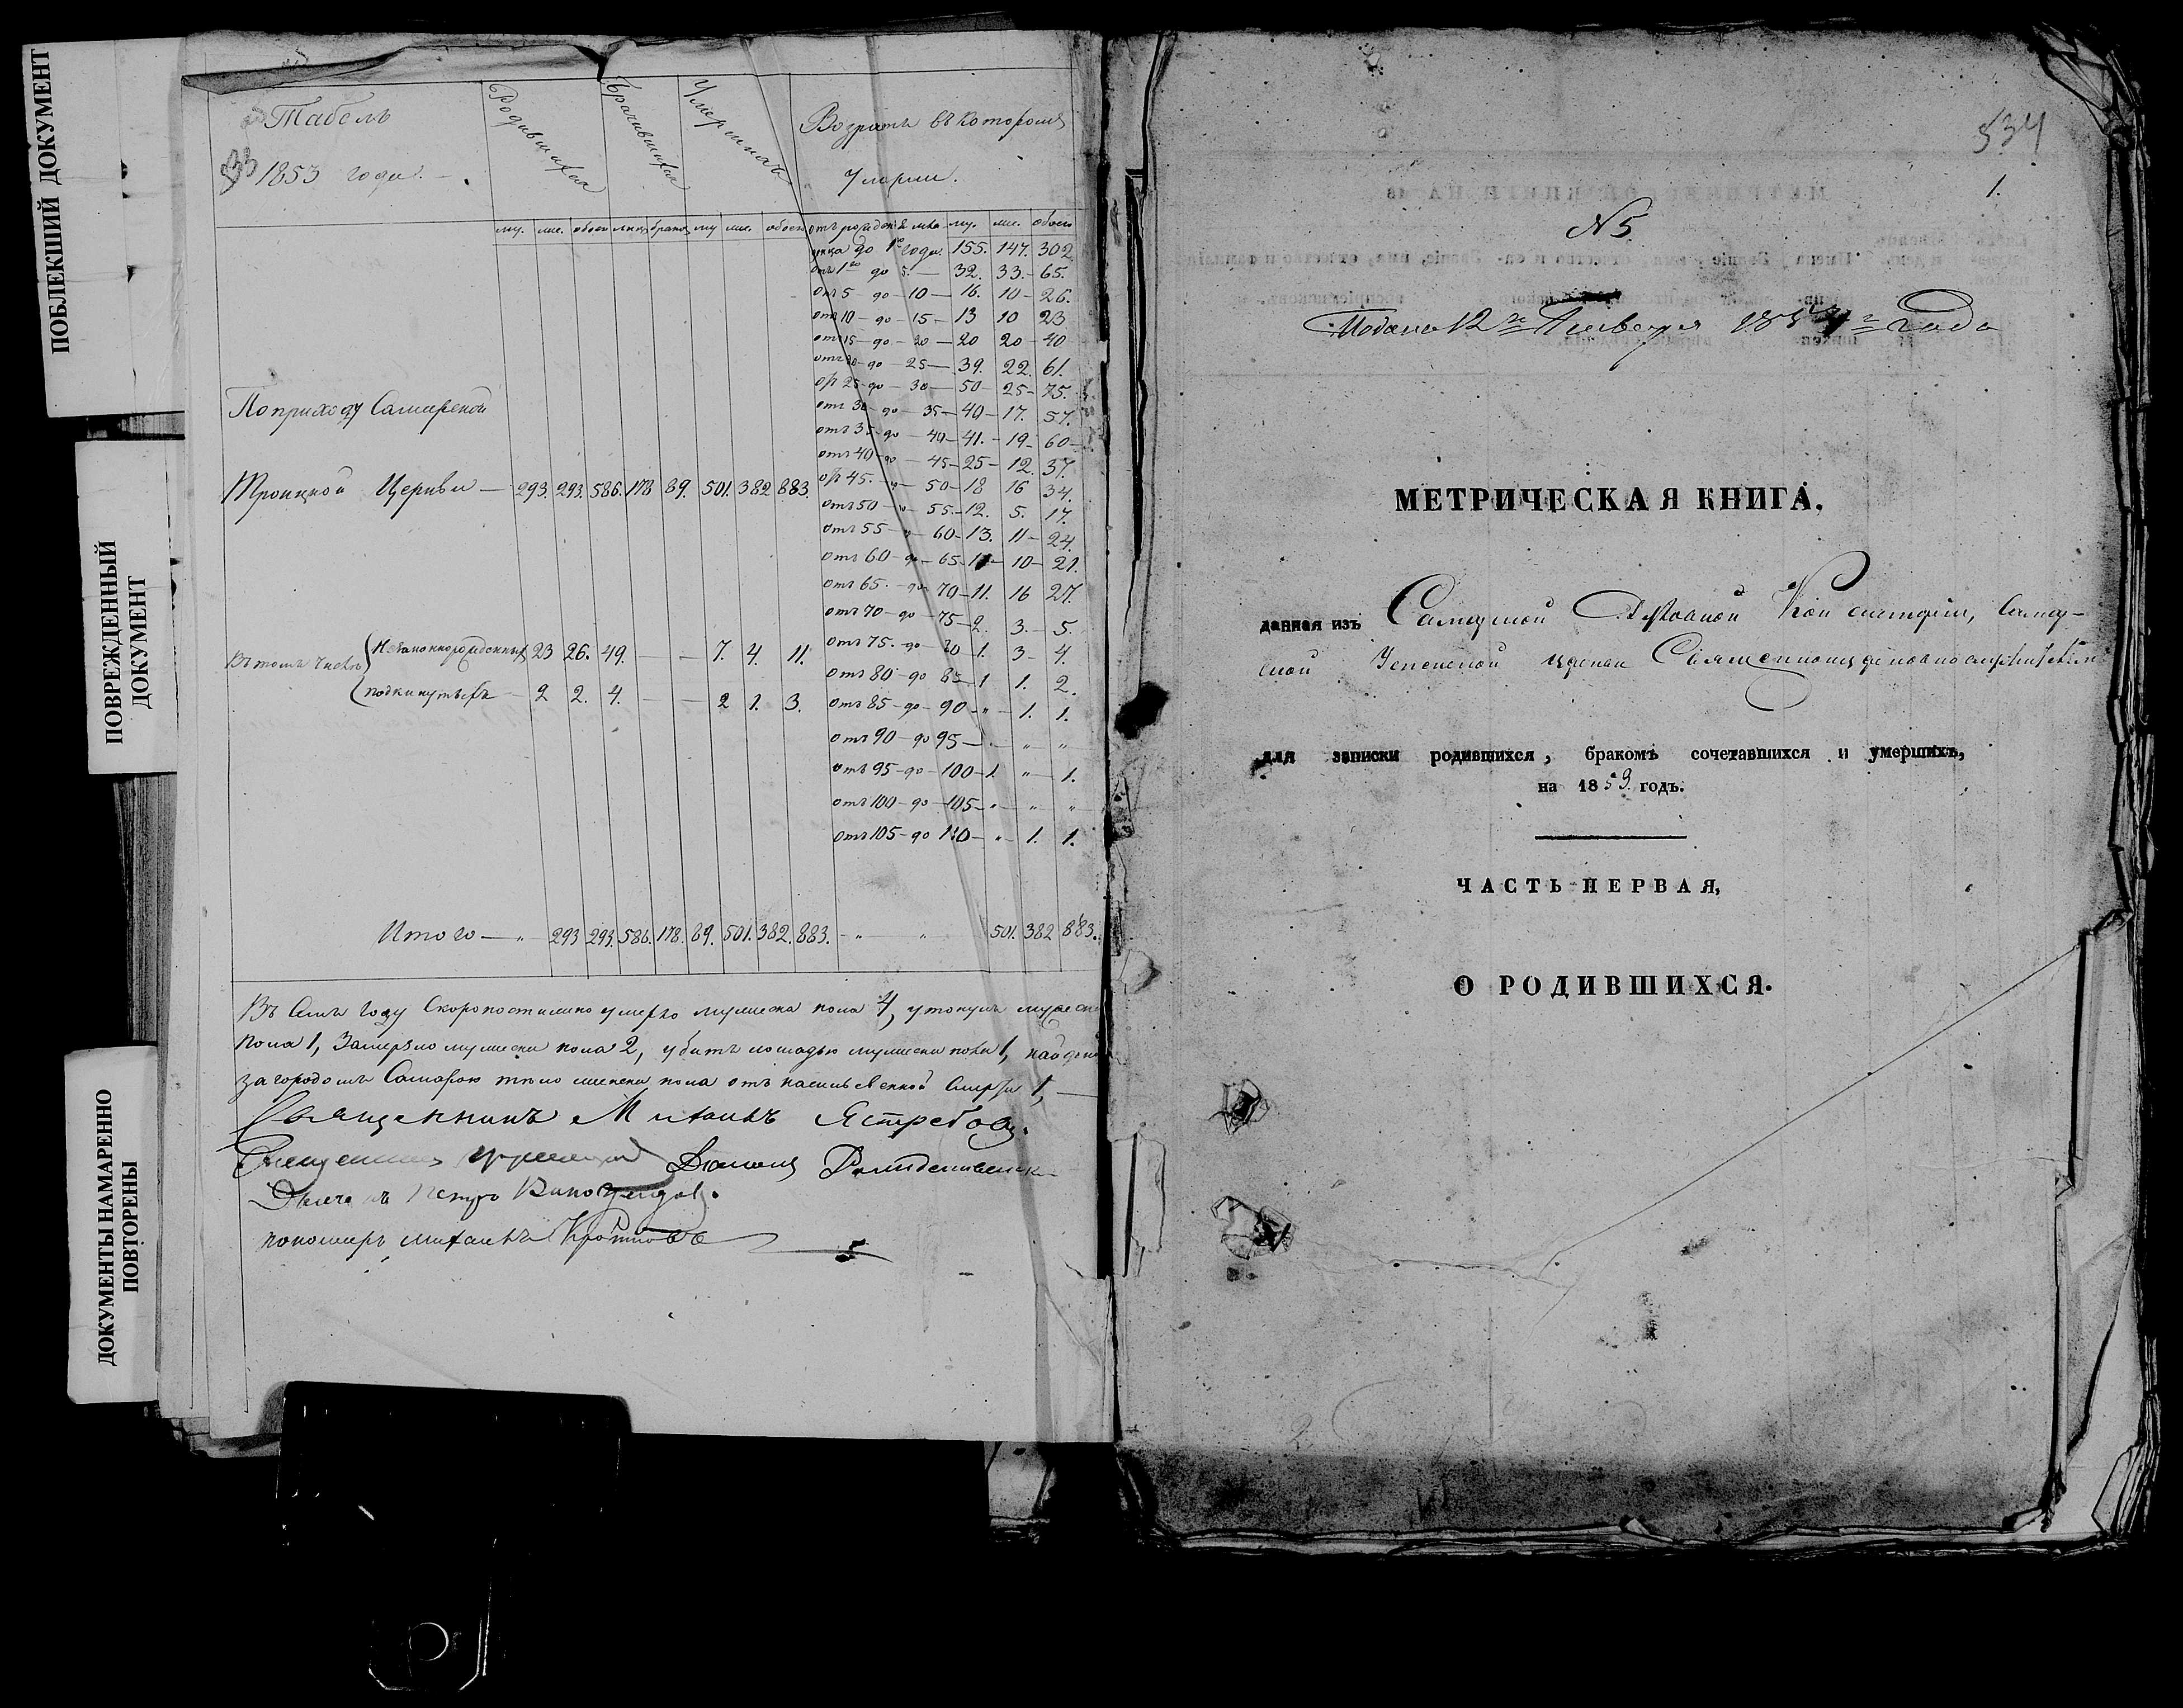 ПОБЛЕКШИЙ ДОКУМЕНТ
ПОВРЕЖДЕННЫЙ
ДОКУМЕНТ
ДОКУМЕНТЫ НАМАРЕННО
ПОВТОРЕНЫ
Табель
1853 года.
Родившихся
Брачившихся
Умершихъ
Возрастъ въ которомъ
Умерли.
му. же. обоего лицъ браков му же. обоего отъ рожденія мла- му. же. обоего
енца до 1го года. 155. 147. 302
отъ 1го до 5. — 32. 33. — 65.
от 5 — до — 10 — 16. 10 — 26.
от 10 — до — 15 — 13 10 23
от 15 — до — 20 — 20 20 — 40
от 20 — до — 25 — 39. 22. 61.
от 25 — до — 30 — 50 — 25 — 75.
отъ 30 — до — 35 — 40 — 17. 57.
отъ 35 — до — 40 — 41. — 19 — 60 —
отъ 40 — до — 45 — 25 — 12. 37.
от 45. — „ — 50 — 18 16 34.
отъ 50 — „ — 55. — 12. 5. 17.
отъ 55 — „ — 60 — 13. 11 — 24.
отъ 60 — до — 65. 10 — 21.
отъ 65. — до — 70 — 11. 16 27.
отъ 70 — до — 75 — 2. 3. — 5.
отъ 75. — до — 80 — 1. 3 — 4.
отъ 80 — до 85 — 1 1. 2.
отъ 85 — до — 90 — „ — 1. 1.
отъ 90 — до 95 — „ — „ — „
отъ 95 — до — 100 — 1. „ — 1.
отъ 100 — до — 105 — „ — „ „
отъ 105 — до 110 — „ — 1. 1.
По приходу Самарской
Троицкой Церкви — 293. 293. 586. 178 89. 501. 382 883.
Въ томъ числѣ
Незаконнорожденныхъ 23 26. 49. — — 7. 4. 11.
подкинутыхъ — 2 2. 4. — — 2 1. 3.
Итого — „ — 293 293. 586. 178. 89. 501. 382. 883. — „ „ 501. 382 883.
Въ семъ году скоропостижно умерло мужеска пола 4, утонулъ мужеска
пола 1, замерзло мужеска пола 2, убитъ лошадью мужеска пола 1, найдено
за городомъ Самарою тѣло женска пола отъ насильственной смерти 1, —
Священникъ Михаилъ Ястребовъ.
Священникъ
Діаконъ Рождественск
Дьячекъ Петръ Виноградовъ.
пономарь Михаилъ Кротковъ
534
1.
№ 5
Подана 12го Января 1854го года
МЕТРИЧЕСКАЯ КНИГА,
данная изъ Самарской Духовной Консисторіи, Самар-
ской Успенской церкви Священноцерковнослужителямъ
для записки родившихся, бракомъ сочетавшихся и умершихъ,
на 1853. годъ.
ЧАСТЬ ПЕРВАЯ,
О РОДИВШИХСЯ.